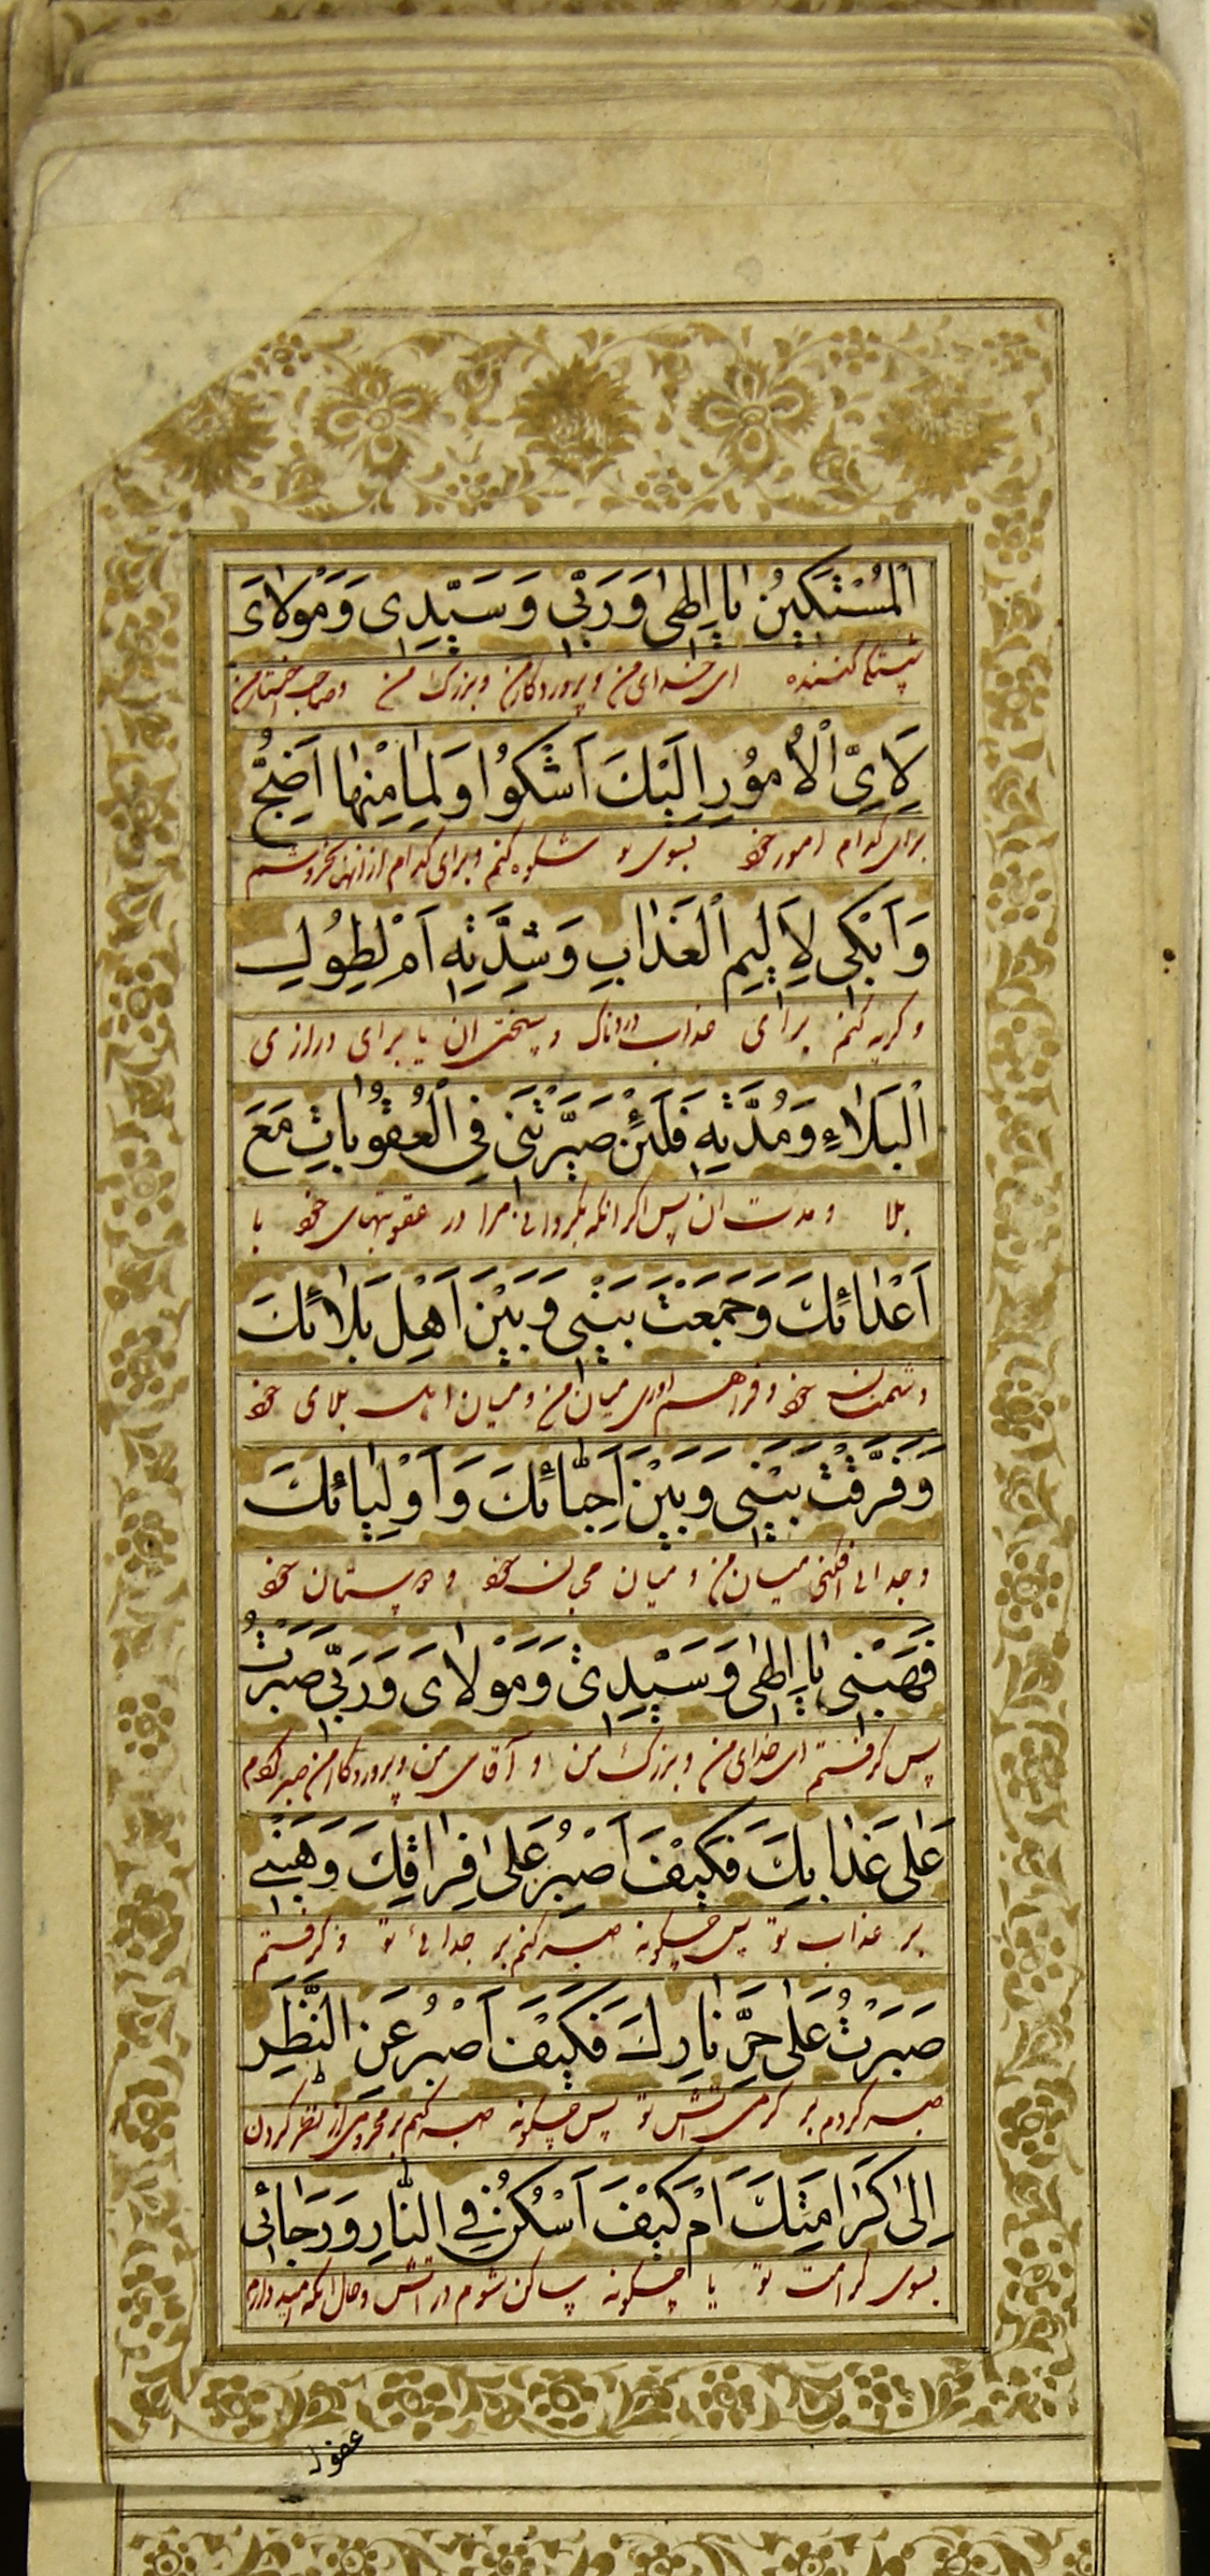 اَلْمُسْتَكِينُ يٰا اِلٰهى وَ رَبّى وَ سَيِّدِى وَ مَوْلاٰىَ
كننده اى خداى من و پروردكار من و بزرك من و صاحب اختيار من
لِاَىِّ الْاُمُورِ اِلَيْكَ اَشْكُوا وَ لِمٰا مِنْهٰا اَضِجُّ
براى كدام امور خود بسوى تو شكوه كنم و براى كدام از آنها بخروشم
وَ اَبْكى لِاَلِيمِ الْعَذٰابِ وَ شِدَّتِهِ اَمْ لِطُولِ
و كريه كنم براى عذاب دردناك و سختى ان يا براى درازى
الْبَلاٰءِ وَ مُدَّتِهِ فَلَئِنْ صَيَّرْتَنى فِى الْعُقُوبٰاتِ مَعَ
بلا و مدت ان پس اكر انكه بكردانى مرا در عقوبتهاى خود با
اَعْدٰائِكَ وَ جَمَعْتَ بَيْنى وَ بَيْنَ اَهْلِ بَلاٰئِكَ
دشمنان خود و فراهم اورى ميان من و ميان اهل بلاى خود
وَ فَرَّقْتَ بَيْنى وَ بَيْنَ اَحِبّٰائِكَ وَ اَوْلِيٰائِكَ
و جدائى افكنى ميان من و ميان محبان خود و دوستان خود
فَهَبْنى يٰا اِلٰهى وَ سَيِّدِى وَ مَوْلاٰىَ وَ رَبّى صَبَرْتُ
پس كرفتم اى خداى من و بزرك من و آقاى من و پروردكار من صبر كردم
عَلىٰ عَذٰابِكَ فَكَيْفَ اَصْبِرُ عَلىٰ فِرٰاقِكَ وَ هَبْنى
بر عذاب تو پس چكونه صبر كنم بر جدائى تو و كرفتم
صَبَرْتُ عَلىٰ حَرِّ نٰارِكَ فَكَيْفَ اَصْبِرُ عَنِ النَّظَرِ
صبر كردم بر كرمى آتش تو پس چكونه صبر كنم بر محرومى از نظر كردن
اِلىٰ كَرٰامَتِكَ اَمْ كَيْفَ اَسْكُنُ فِى النّٰارِ وَ رَجٰائى
بسوى كرامت تو يا چكونه ساكن شوم در اتش و حال انكه اميد دارم
عفوك